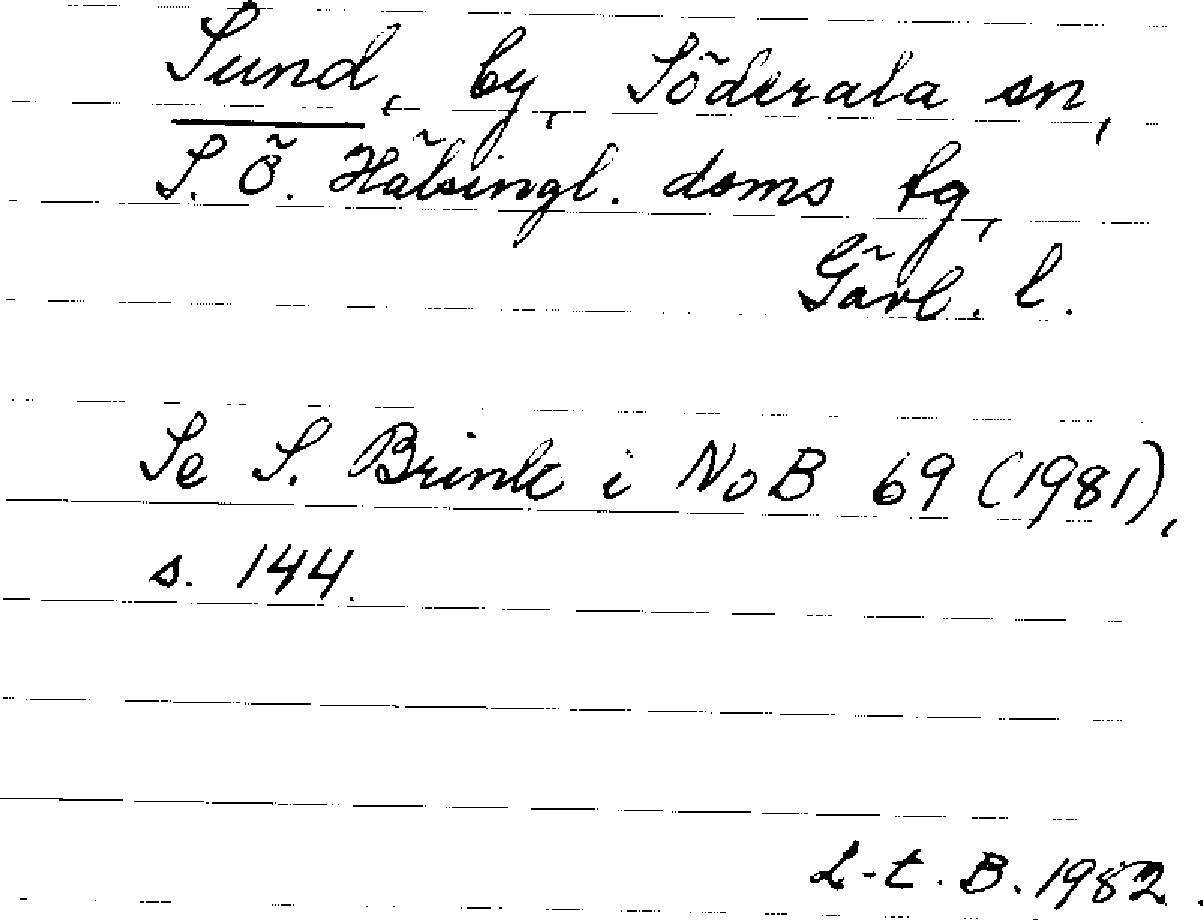 Sund, by, Söderala sn,
S. Ö. Hälsingl. doms tg,
Gävl. l.
Se S. Brink i NoB 69 (1981),
s. 144.
L-t. B. 1982